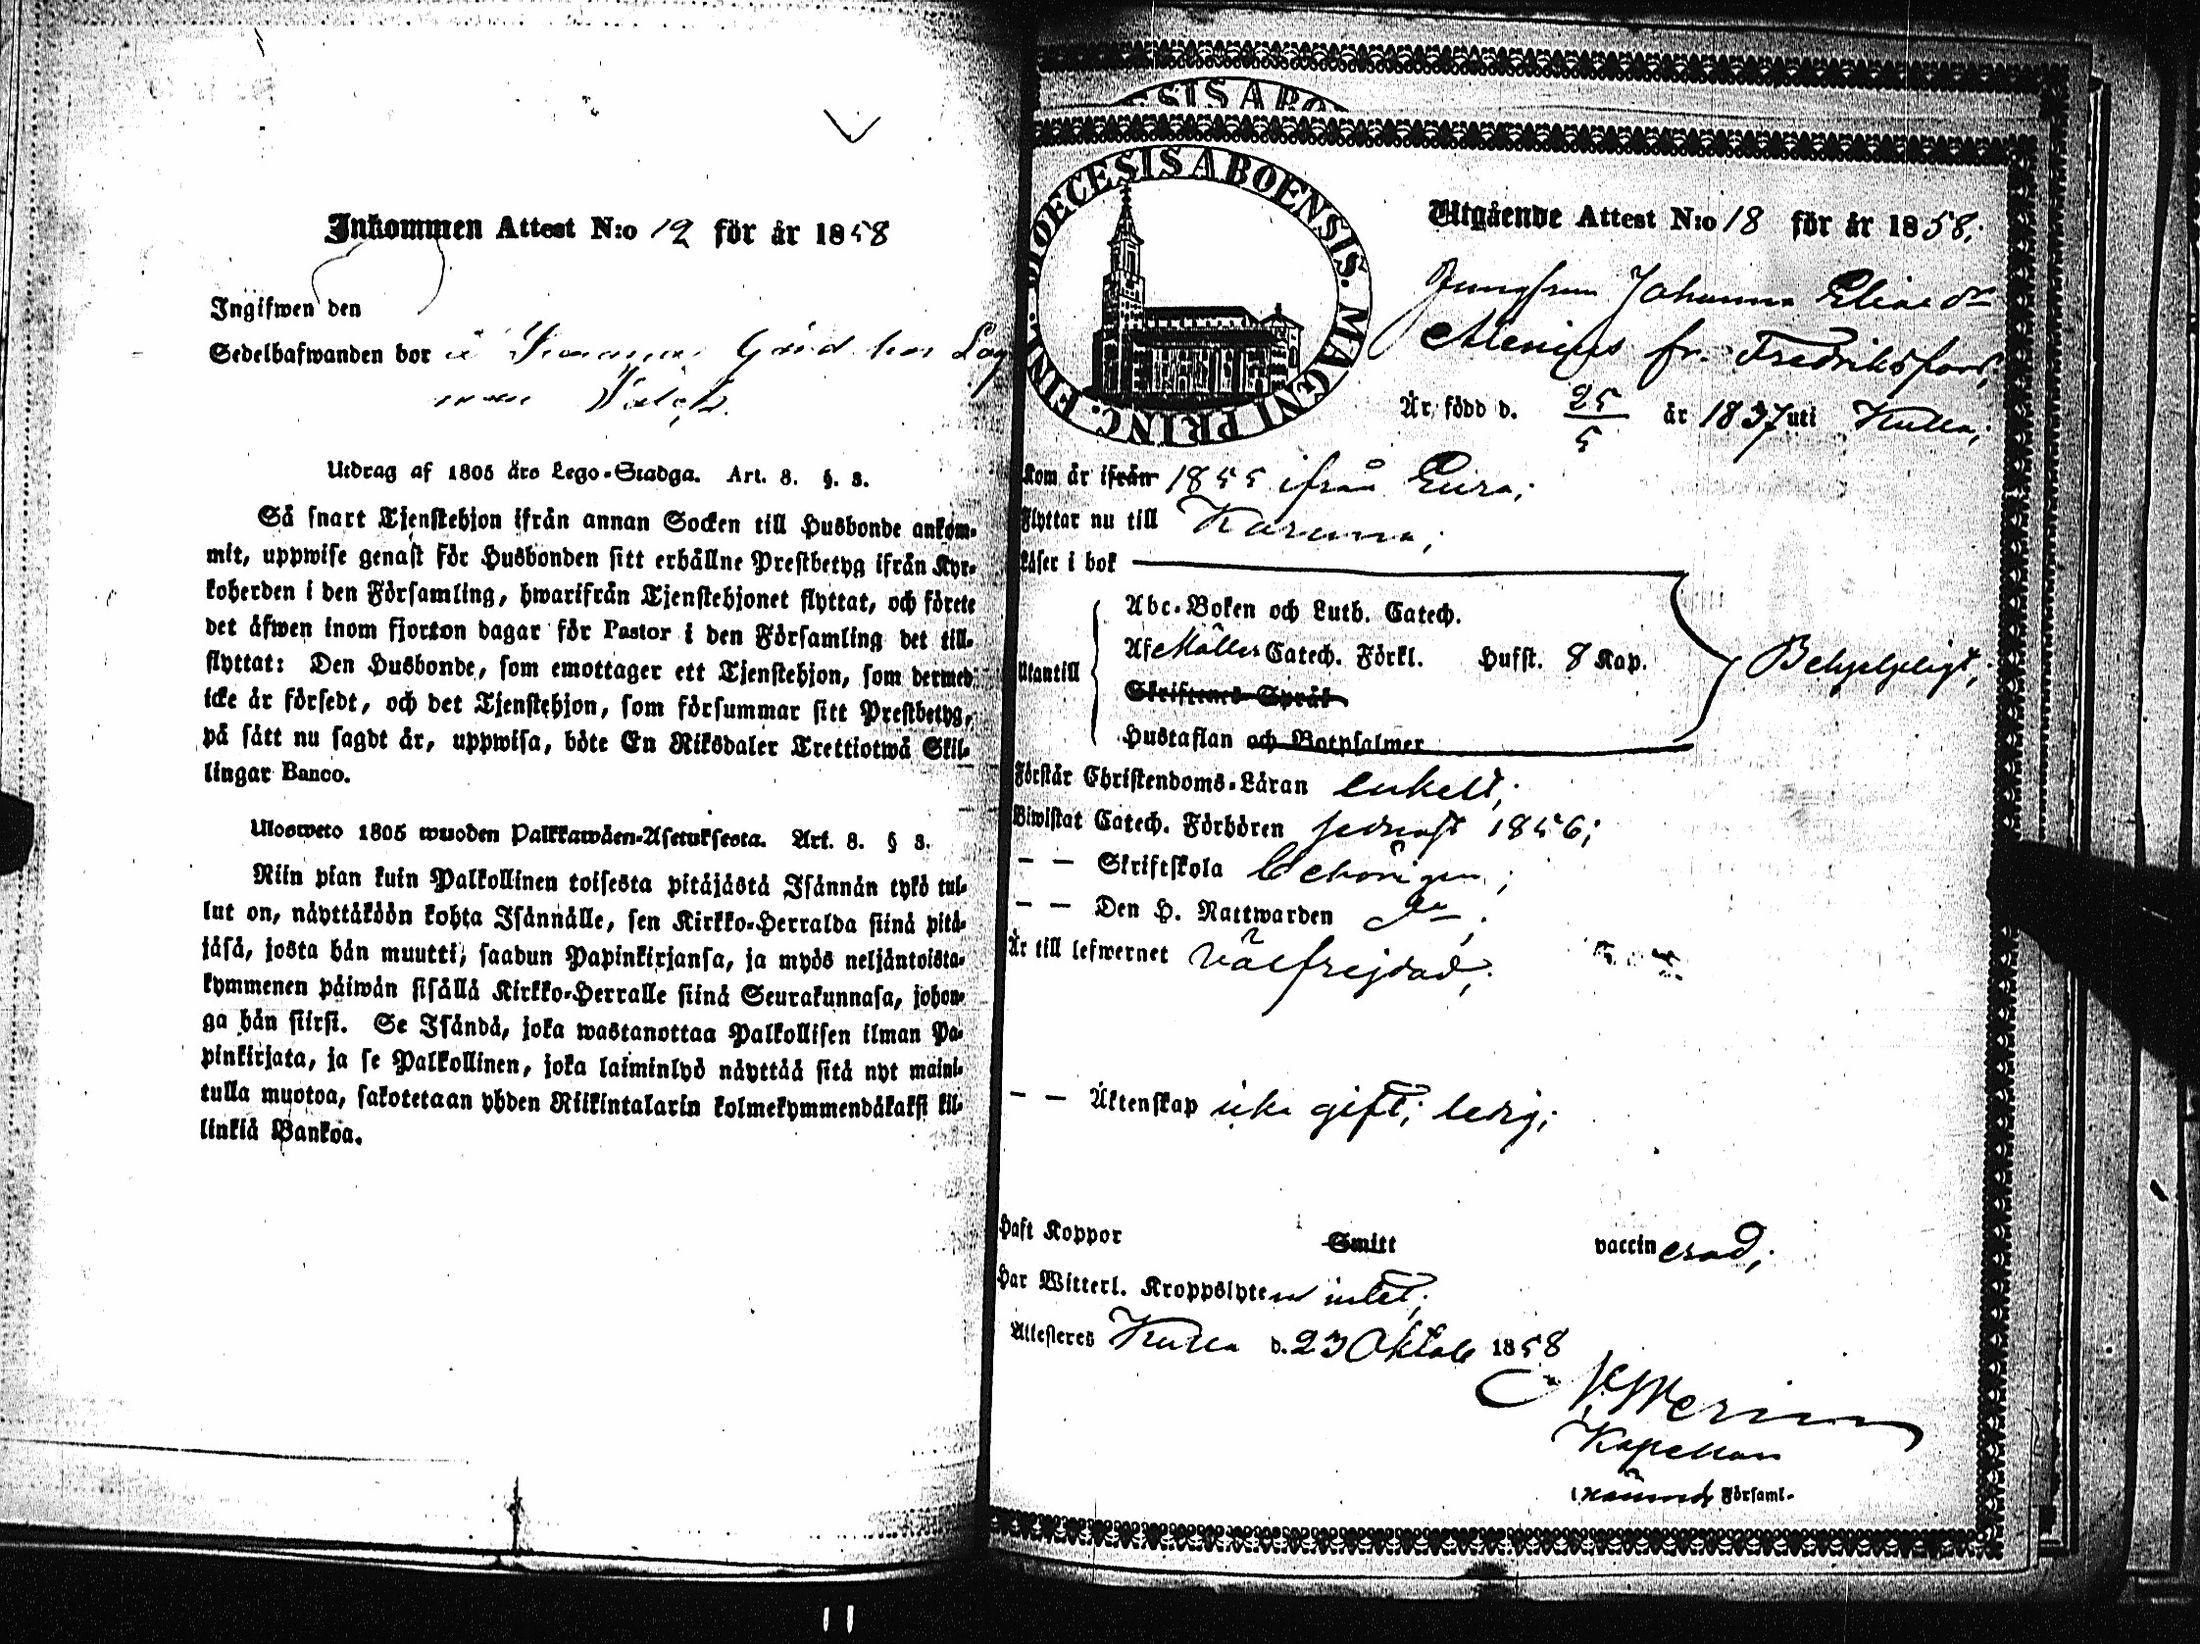 Inkommen Attest N:o 12 för år 1858
Ingifwen den
Sedelhafwanden bor i Gård hos Lag
man
Utdrag af 1805 års Lego-Stadga. Art. 8. §. 3.
Så snart Tjenstehjon ifrån annan Socken till Husbonde ankom-
mit, uppwise genast för Husbonden sitt erhållne Prestbetyg ifrån Kyr-
koherden i den Församling, hwarifrån Tjenstehjonet flyttat, och förete
det äfwen inom fjorton dagar för Pastor i den Församling det till-
flyttat: Den Husbonde, som emottager ett Tjenstehjon, som dermed
icke är försedt, och det Tjenstehjon, som försummar sitt Prestbetyg,
på sätt nu sagdt är, uppwisa, böte En Riksdaler Trettiotwå Skil-
lingar Banco.
Ulosweto 1805 wuoden Palkkawäen-Asetuksesta. Art. 8. § 3.
Niin pian kuin Palkollinen toisesta pitäjästä Isännän tykö tul-
lut on, näyttäköön kohta Isännälle, sen Kirkko-Herralda siinä pitä-
jäsä, josta hän muutti, saadun Papinkirjansa, ja myös neljäntoista-
kymmenen päiwän sisällä Kirkko-Herralle siinä Seurakunnasa, johon-
ga hän siirsi. Se Isändä, joka wastanottaa Palkollisen ilman Pa-
pinkirjata, ja se Palkollinen, joka laiminlyö näyttää sitä nyt maini-
tulla muotoa, sakotetaan yhden Riikintalarin kolmekymmendäkaksi kil-
linkiä Bankoa.
DIOECESIS ABOENSIS. MAGNI PRINC. FINL.
Utgående Attest N:o 18 för år 1858;
Jungfrun Johanna Elias dr
Alenius fr. Fredriksfors;
Är född d. 25/5 år 1837 uti Kulla;
Kom år ifrån 1855 ifrån Eura;
Flyttar nu till Karuna;
Läser i bok
Utantill
Abc-Boken och Luth. Catech.
Af Möllers Catech. Förkl. Hufst. 8 Kap.
Skriftenes Språk
Hustaflan och Botpsalmer
Behjelpligt;
Förstår Christendoms-Läran enkelt;
Biwistat Catech. Förhören sednast 1856;
— — Skriftskola behörigen;
— — Den H. Nattwarden do;
Är till lefwernet välfrejdad;
— — Äktenskap icke gift; ledig;
Haft Koppor Smitt vaccinerad;
Har Witterl. Kroppslyten intet;
Attesteres Kulla d. 23 Oktob 1858
Kapellan
i Församl.